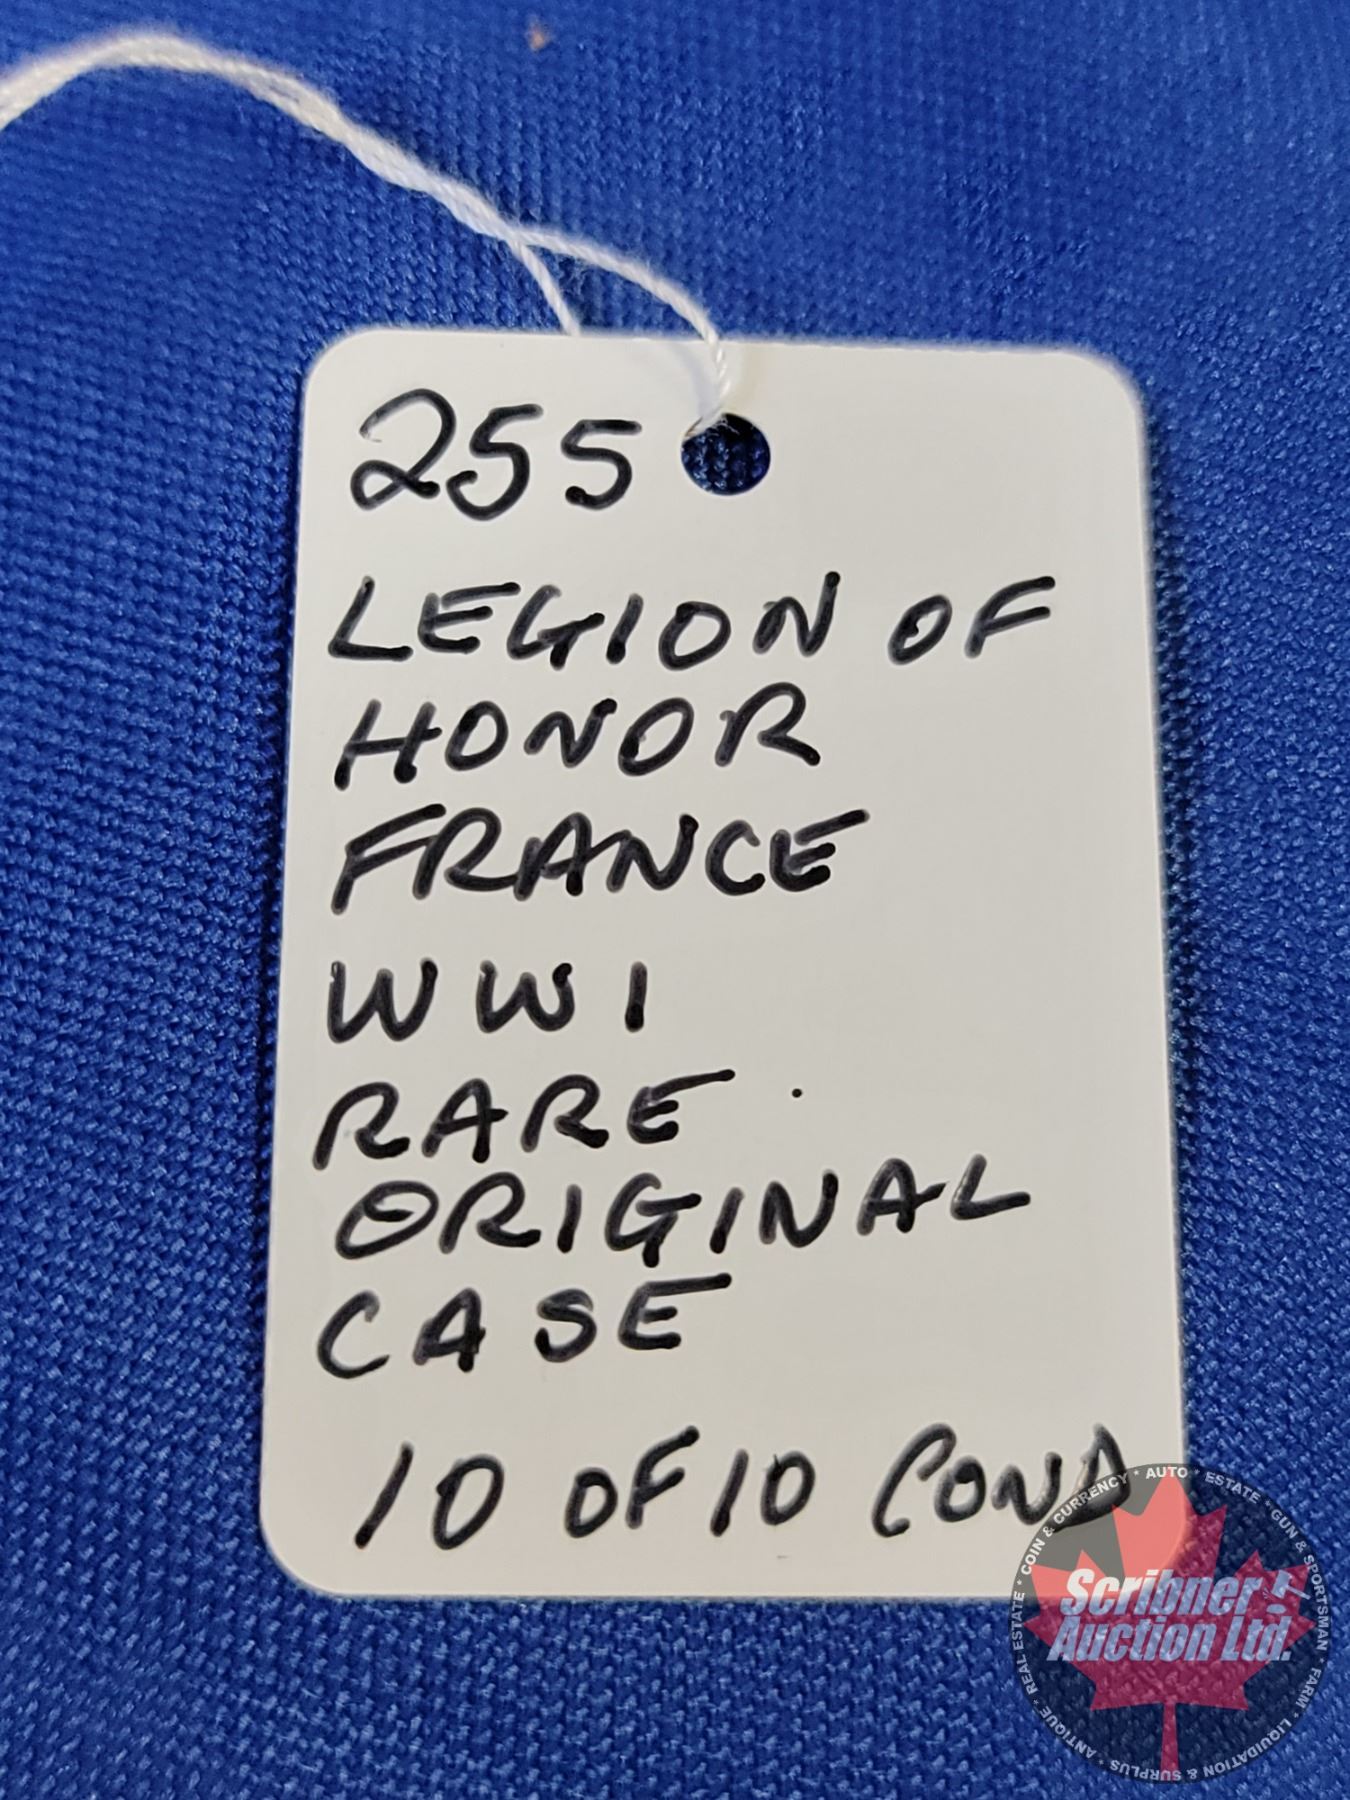 255
LEGION OF
HONOR
FRANCE
WW1
RARE.
ORIGINAL
CASE
10 OF 10 COND
Scribner!
Auction Ltd.
REAL ESTATE * COIN & CURRENCY * AUTO * ESTATE * GUN & SPORTSMAN * FARM * LIQUIDATION & SURPLUS * ANTIQUE *